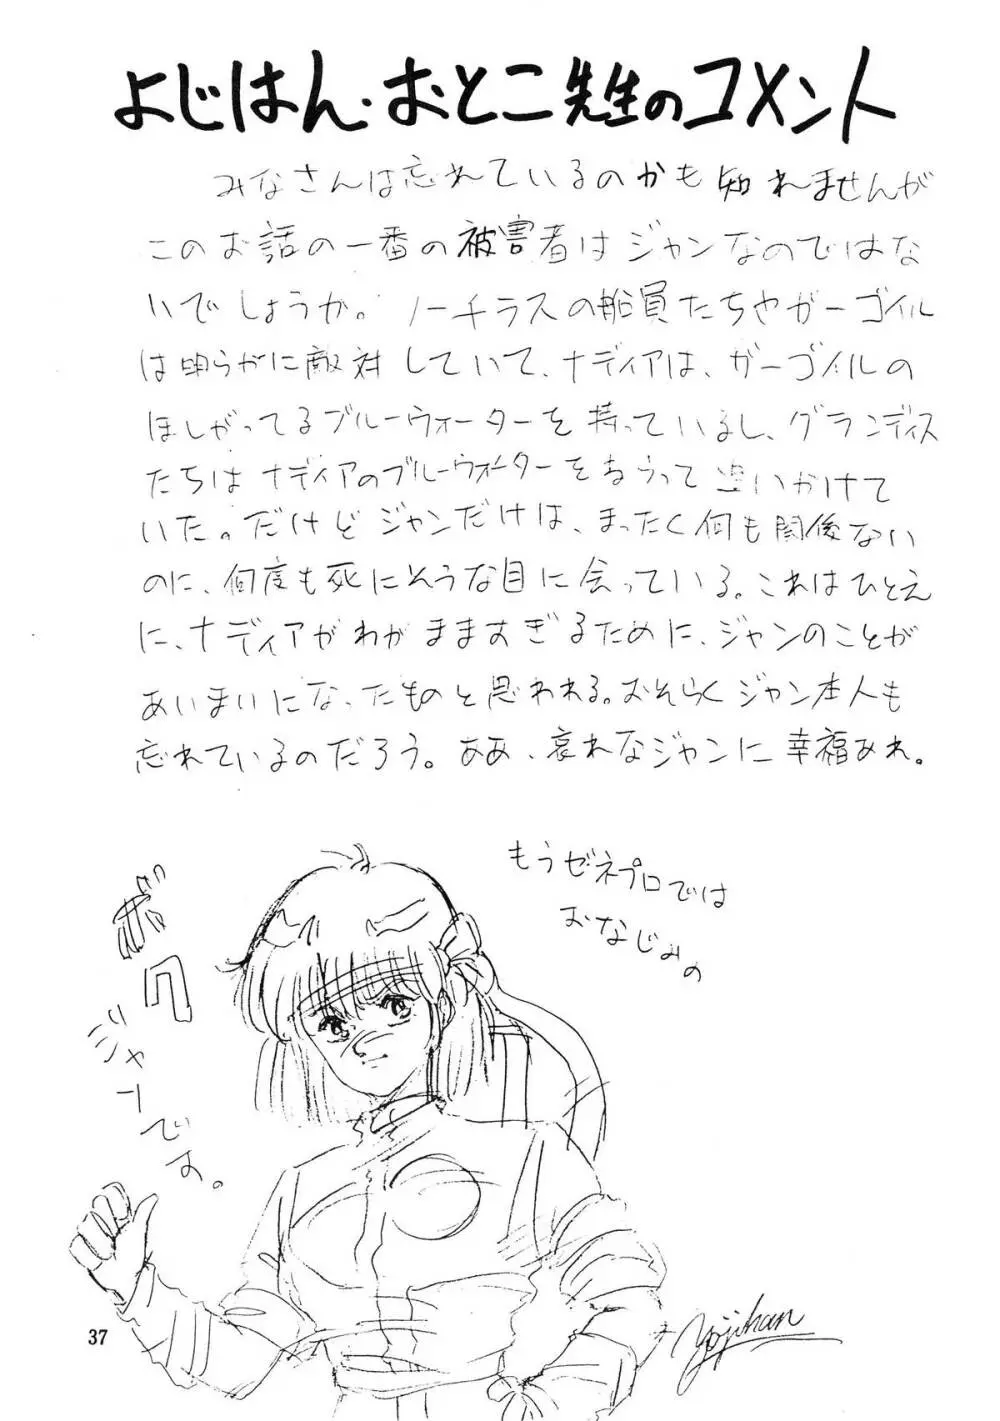 よじはん・おとこ先生のコメント
みなさんは忘れているのかも知れませんが
このお話の一番の被害者はジャンなのではな
いでしょうか。ノーチラスの船員たちやガーゴイル
は明らかに敵対していて、ナディアは、ガーゴイルの
ほしがってるブルーウォーターを持っているし、グランディス
たちはナディアのブルーウォーターをねらって追いかけて
いた。だけどジャンだけは、まったく何も関係ない
のに、何度も死にそうな目に会っている。これはひとえ
に、ナディアがわがまますぎるために、ジャンのことが
あいまいになったものと思われる。おそらくジャン本人も
忘れているのだろう。ああ、哀れなジャンに幸福あれ。
もうゼネプロでは
おなじみの
ボク
ジャーです。
Yojihan
37